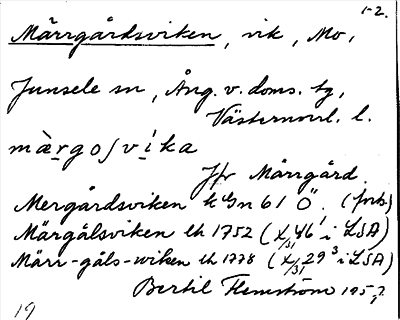 1-2.
Märrgårdsviken, vik, Mo,
Junsele sn, Ång. v. doms. tg,
Västernorrl. l.
màrgoʃvíka
Jfr Mårrgård.
Mergårdsviken k Gn 61 Ö. (forts)
Märgålsviken lh 1752 (X/31 46¹ i LSA)
Märr-gåls-wiken lh 1778 (X/31 29³ i LSA)
Bertil Flemström 195
19